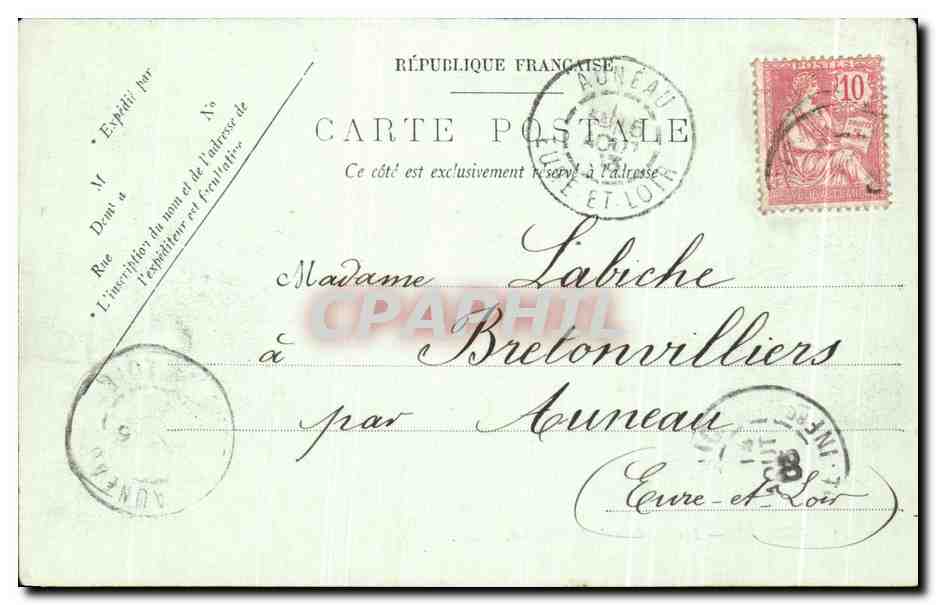 RÉPUBLIQUE FRANÇAISE
CARTE POSTALE
Ce côté est exclusivement réservé à l'adresse
Expédié par
M
Demt a
Rue
No
• L'inscription du nom et de l'adresse de
l'expéditeur est facultative
POSTES
10
AUNEAU
EURE-ET-LOIR
Madame Labiche
à Bretonvilliers
par Auneau
(Eure-et-Loir)
CPAPHIL
AUNEAU
INFRE